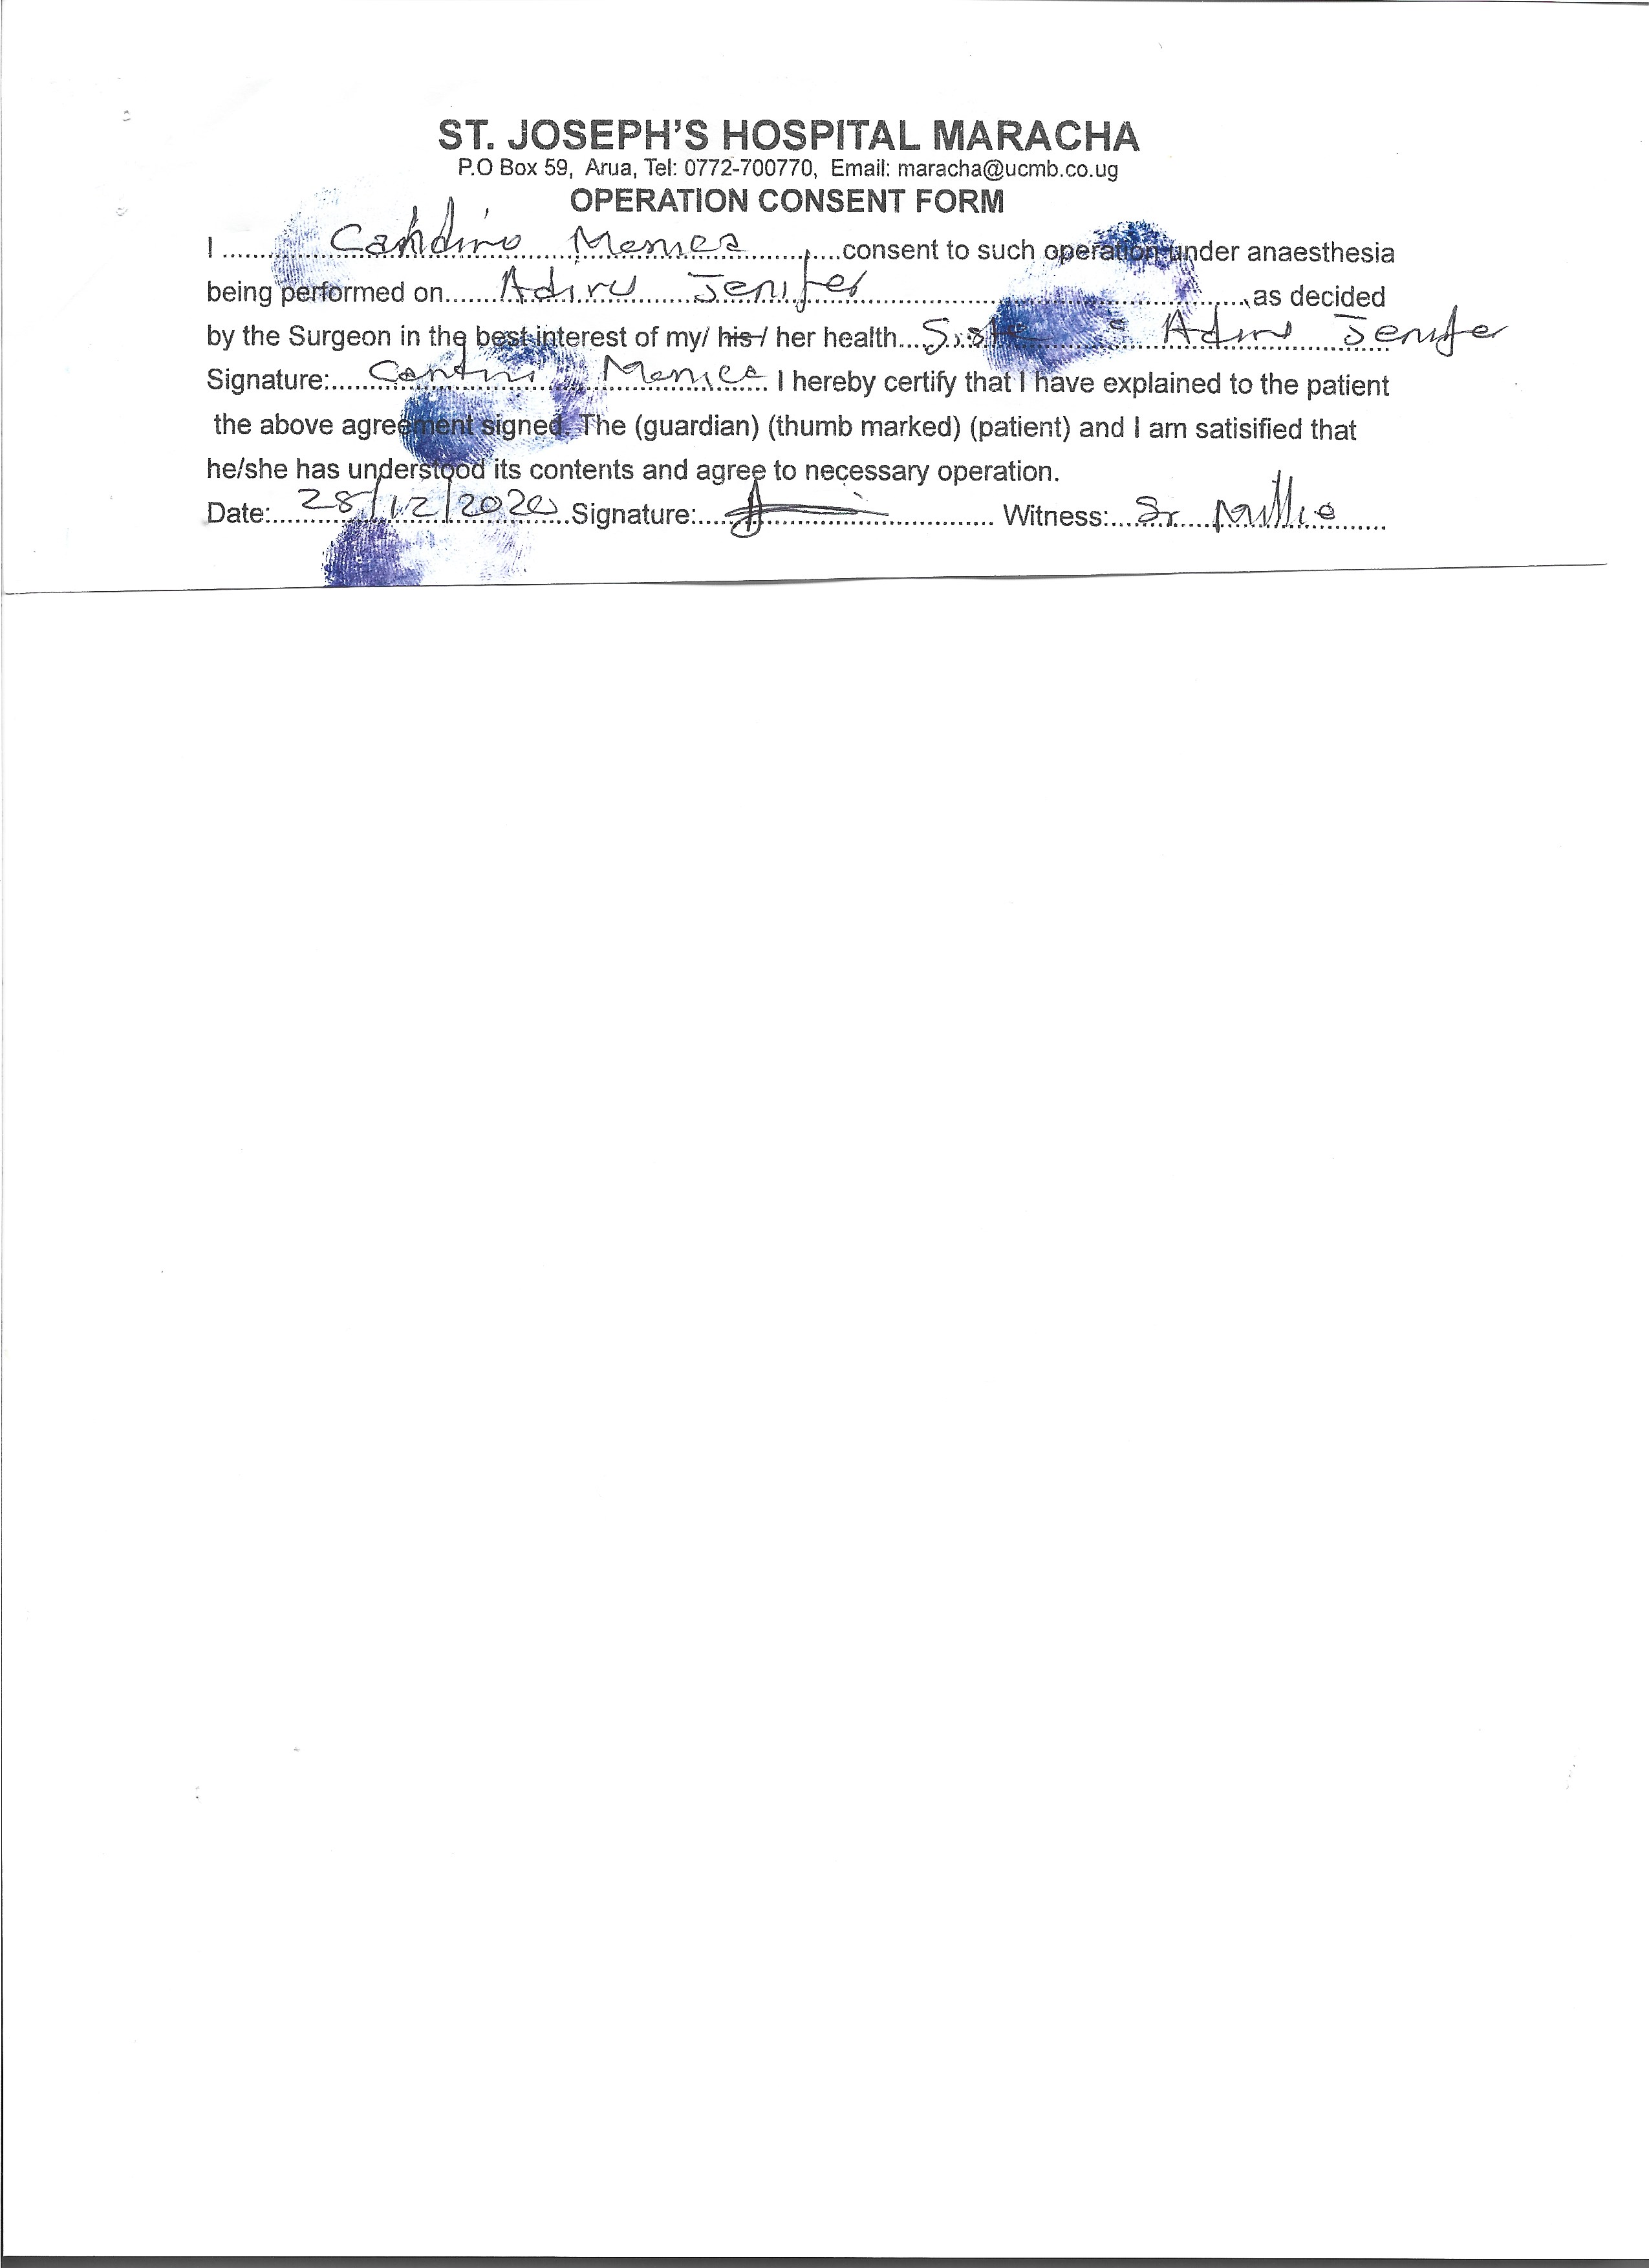 ST. JOSEPH'S HOSPITAL MARACHA
P.O Box 59, Arua, Tel: 0772-700770, Email: maracha@ucmb.co.ug
OPERATION CONSENT FORM
I ................................ consent to such operation under anaesthesia
being performed on....... Adiru Jenifer ..............................as decided
by the Surgeon in the best interest of my/ his / her health.... Jenifer
Signature:................................ I hereby certify that I have explained to the patient
the above agreement signed. The (guardian) (thumb marked) (patient) and I am satisified that
he/she has understood its contents and agree to necessary operation.
Date:..... 28/12/2020 ....Signature:................................ Witness:.... Sr